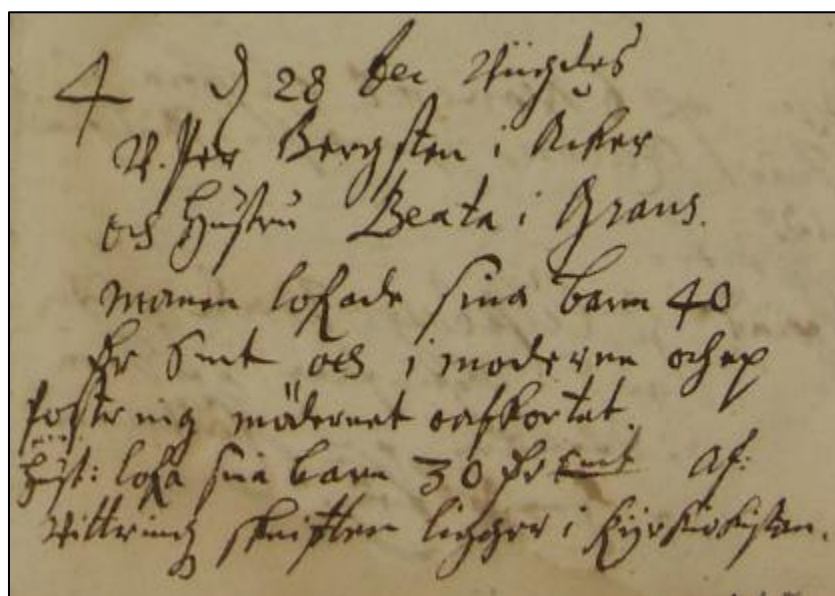 4 d 28 Dec Vigdes
V. Per Bergsten i Acker
och Hustru Beata i Grans.
Manen lofade sina barn 40
dr Smt och i moderne och up
fostring mödernet oafkortat.
Hust: lofa sina barn 30 dr smt af:
Vittring skriften ligger i Kyrkiokistan.